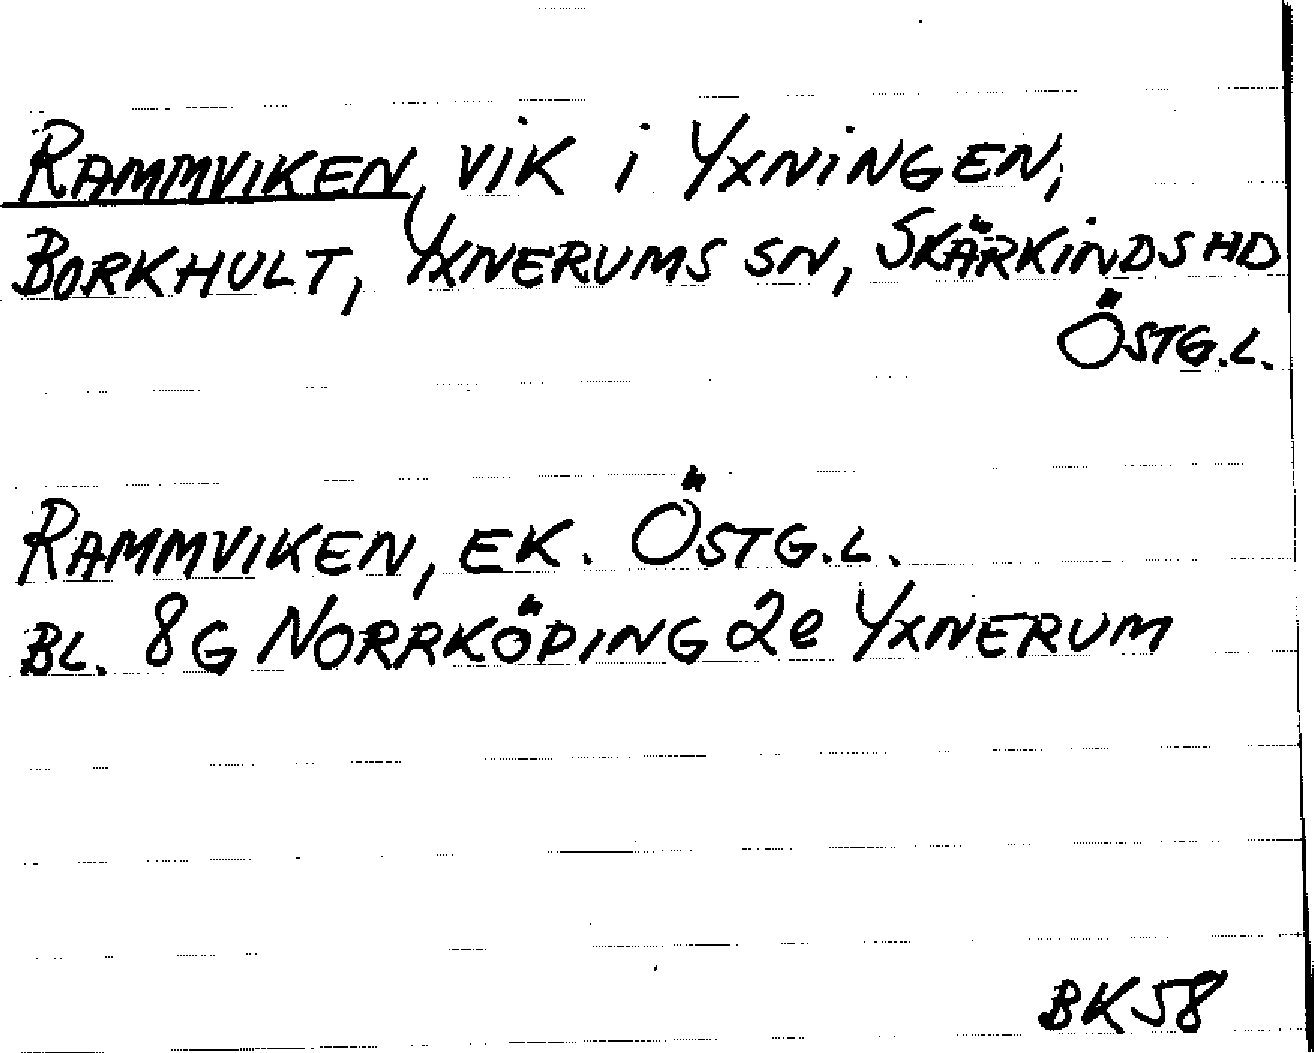 RAMMVIKEN, VIK i YXNiNGEN,
BORKHULT, YXNERUMS SN, SKÄRKiNDS HD
ÖSTG.L.
RAMMVIKEN, EK. ÖSTG.L.
BL. 8G NORRKÖPING 2e YXNERUM
BK58